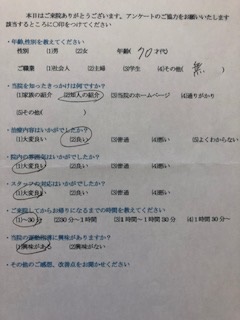 本日はご来院ありがとうございます。アンケートのご協力をお願いいたします
該当するところに〇印をつけてください
・年齢,性別を教えてください
性別 (1)男 (2)女 年齢( 70 才代)
ご職業 (1)社会人 (2)主婦 (3)学生 (4)その他( 無 )
・当院を知ったきっかけは何ですか?
(1)家族の紹介 (2)知人の紹介 (3)当院のホームページ (4)通りがかり
(5)その他( )
・治療内容はいかがでしたか?
(1)大変良い (2)良い (3)普通 (4)悪い (5)よくわからない
・院内の雰囲気はいかがでしたか?
(1)大変良い (2)良い (3)普通 (4)悪い
・スタッフの対応はいかがでしたか?
(1)大変良い (2)良い (3)普通 (4)悪い
・ご来院してからお帰りになるまでの時間を教えてください
(1)~30分 (2)30分~1時間 (3)1時間~1時間30分 (4)1時間30分~
・当院の に興味がありますか?
(1)興味がある (2)興味がない
・その他のご感想、改善点をお聞かせください